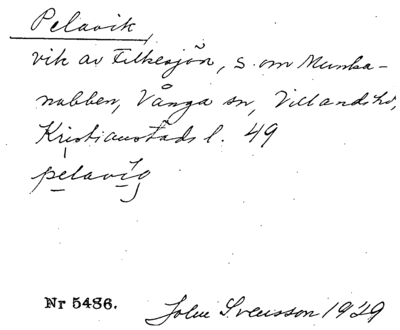 Pelavik
vik av Filkesjön, s. om Munka-
nabben, Vånga sn, Villands hd,
Kristianstads l. 49
pelavig
Nr 5486. John Svensson 1929